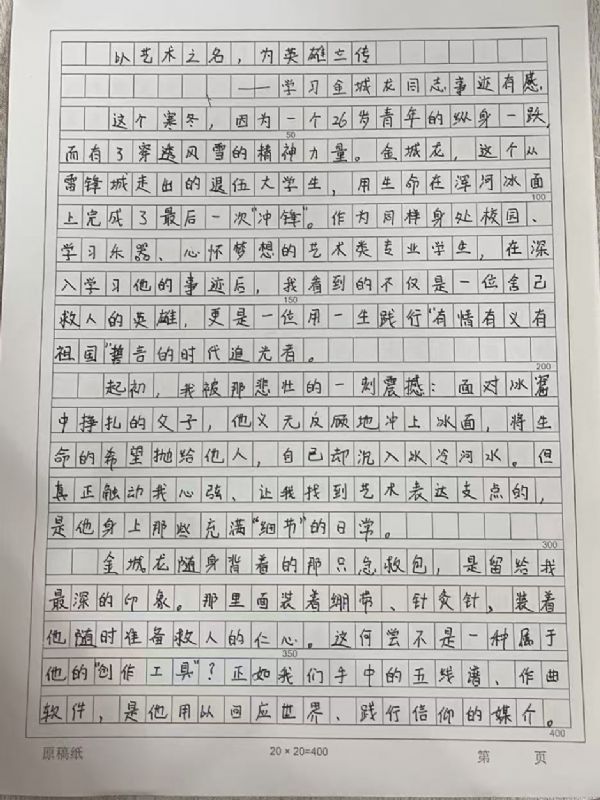 以艺术之名，为英雄立传
——学习金城龙同志事迹有感.
这个寒冬，因为一个26岁青年的纵身一跃,
50
而有了穿透风雪的精神力量。金城龙，这个从
雷锋城走出的退伍大学生，用生命在浑河冰面
100
上完成了最后一次“冲锋”。作为同样身处校园、
学习乐器、心怀梦想的艺术类专业学生，在深
入学习他的事迹后，我看到的不仅是一位舍己
150
救人的英雄，更是一位用一生践行“有情有义有
祖国”誓言的时代追光者。
200
起初，我被那悲壮的一刻震撼：面对冰窟
中挣扎的父子，他义无反顾地冲上冰面，将生
命的希望抛给他人，自己却沉入冰冷河水。但
真正触动我心弦、让我找到艺术表达支点的，
是他身上那些充满“细节”的日常。
300
金城龙随身背着的那只急救包，是留给我
最深的印象。那里面装着绷带、针灸针，装着
他随时准备救人的仁心。这何尝不是一种属于
350
他的“创作工具”？正如我们手中的五线谱、作曲
软件，是他用以回应世界、践行信仰的媒介。
400
原稿纸 20×20=400 第 页